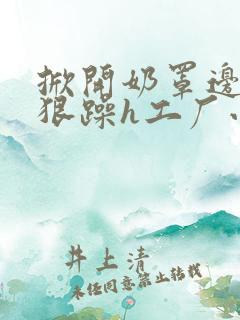 掀开奶罩边
狠躁h工厂、
井上清
未经同意禁止转载